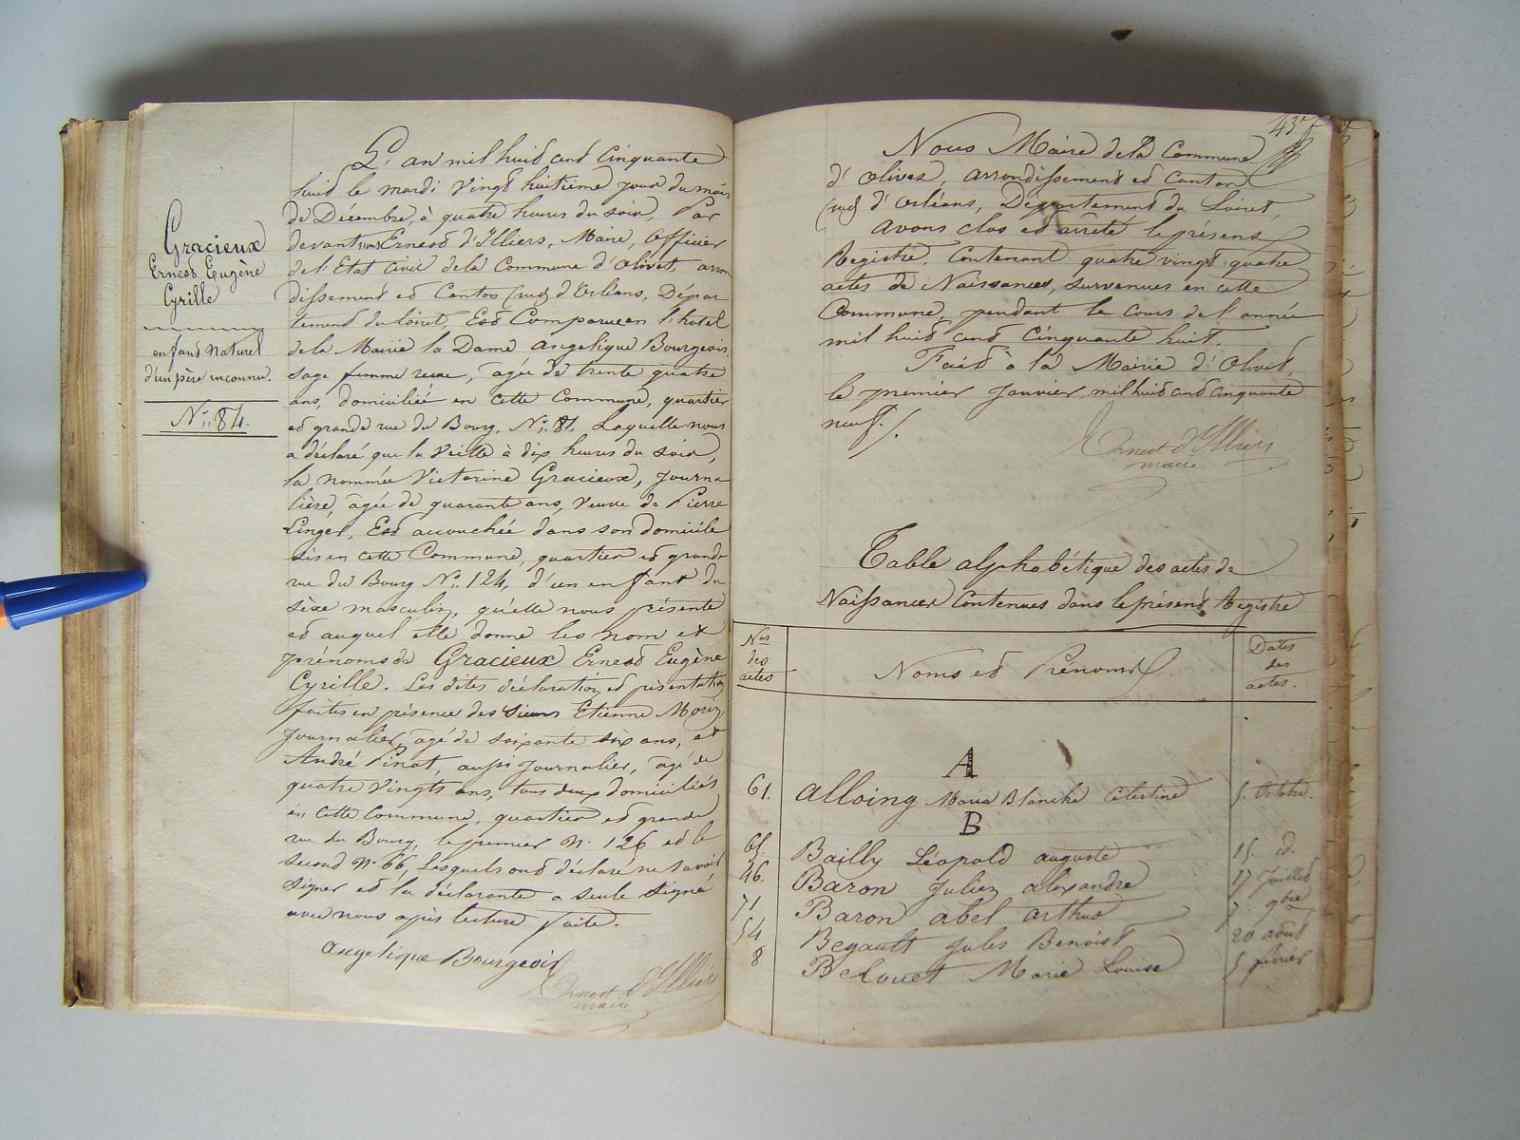 Gracieux
Ernest Eugène
Cyrille
enfant Naturel
d'un père inconnu.
N° 84.
L'an mil huit cent Cinquante
huit le mardi Vingt huitième jour du mois
de Décembre, à quatre heures du soir, Par
devant nous Ernest d'Illiers, Maire, Officier
de l'Etat Civil de la Commune d'Olivet, arron
dissement et Canton (sud) d'Orléans, Dépar
tement du Loiret, Est Comparue en l'hotel
de la Mairie la Dame Angélique Bourgeois
sage femme, agée de trente quatre
ans, domiciliée en cette Commune, quartier
et grande rue du Bourg, N° 81. Laquelle nous
a déclaré que la Veille à dix heures du soir,
la nommée Victorine Gracieux, Journa
lière, âgée de quarante ans, Veuve de Pierre
Linger, Est accouchée dans son domicile
sis en cette Commune, quartier et grande
rue du Bourg N° 124, d'un enfant du
sèxe masculin, qu'elle nous présente
et auquel elle donne les nom et
prénoms de Gracieux Ernest Eugène
Cyrille. Les dites déclaration et présentation
faites en présence des sieurs Etienne
Journalier, agé de soixante six ans, et
André Pinat, aussi Journalier, agé de
quatre Vingts ans, tous deux domiciliés
en cette Commune, quartier et grande
rue du Bourg, le premier N° 126 et le
second N° 66, Lesquels ont déclaré ne savoir
signer et la déclarante a seule signé
avec nous après lecture faite.
Angelique Bourgeois
Ernest d'Illiers
maire
43
Nous Maire de la Commune
d'Olivet, arrondissement et Canton
(sud) d'Orléans, Département du Loiret,
Avons clos et arrêté le présent
Registre, Contenant quatre vingt quatre
actes de Naissances, survenues en cette
Commune, pendant le cours de l'année
mil huit cent cinquante huit.
Fait à la Mairie d'Olivet,
le premier Janvier mil huit cent cinquante
neuf./.
Ernest d'Illiers
maire
Table alphabétique des actes de
Naissances Contenues dans le présent Registre
Nos des actes
Noms et Prénoms
Dates des actes.
A
61. Alloing Maria Blanche Célestine 5. Octobre.
B
65. Bailly Léopold auguste 15. id.
46. Baron Julien alexandre 17 Juillet
71 Baron abel arthur 7. 9bre
54 Begault Jules Benoist 20 août
8 Belouet Marie Louise 5 février